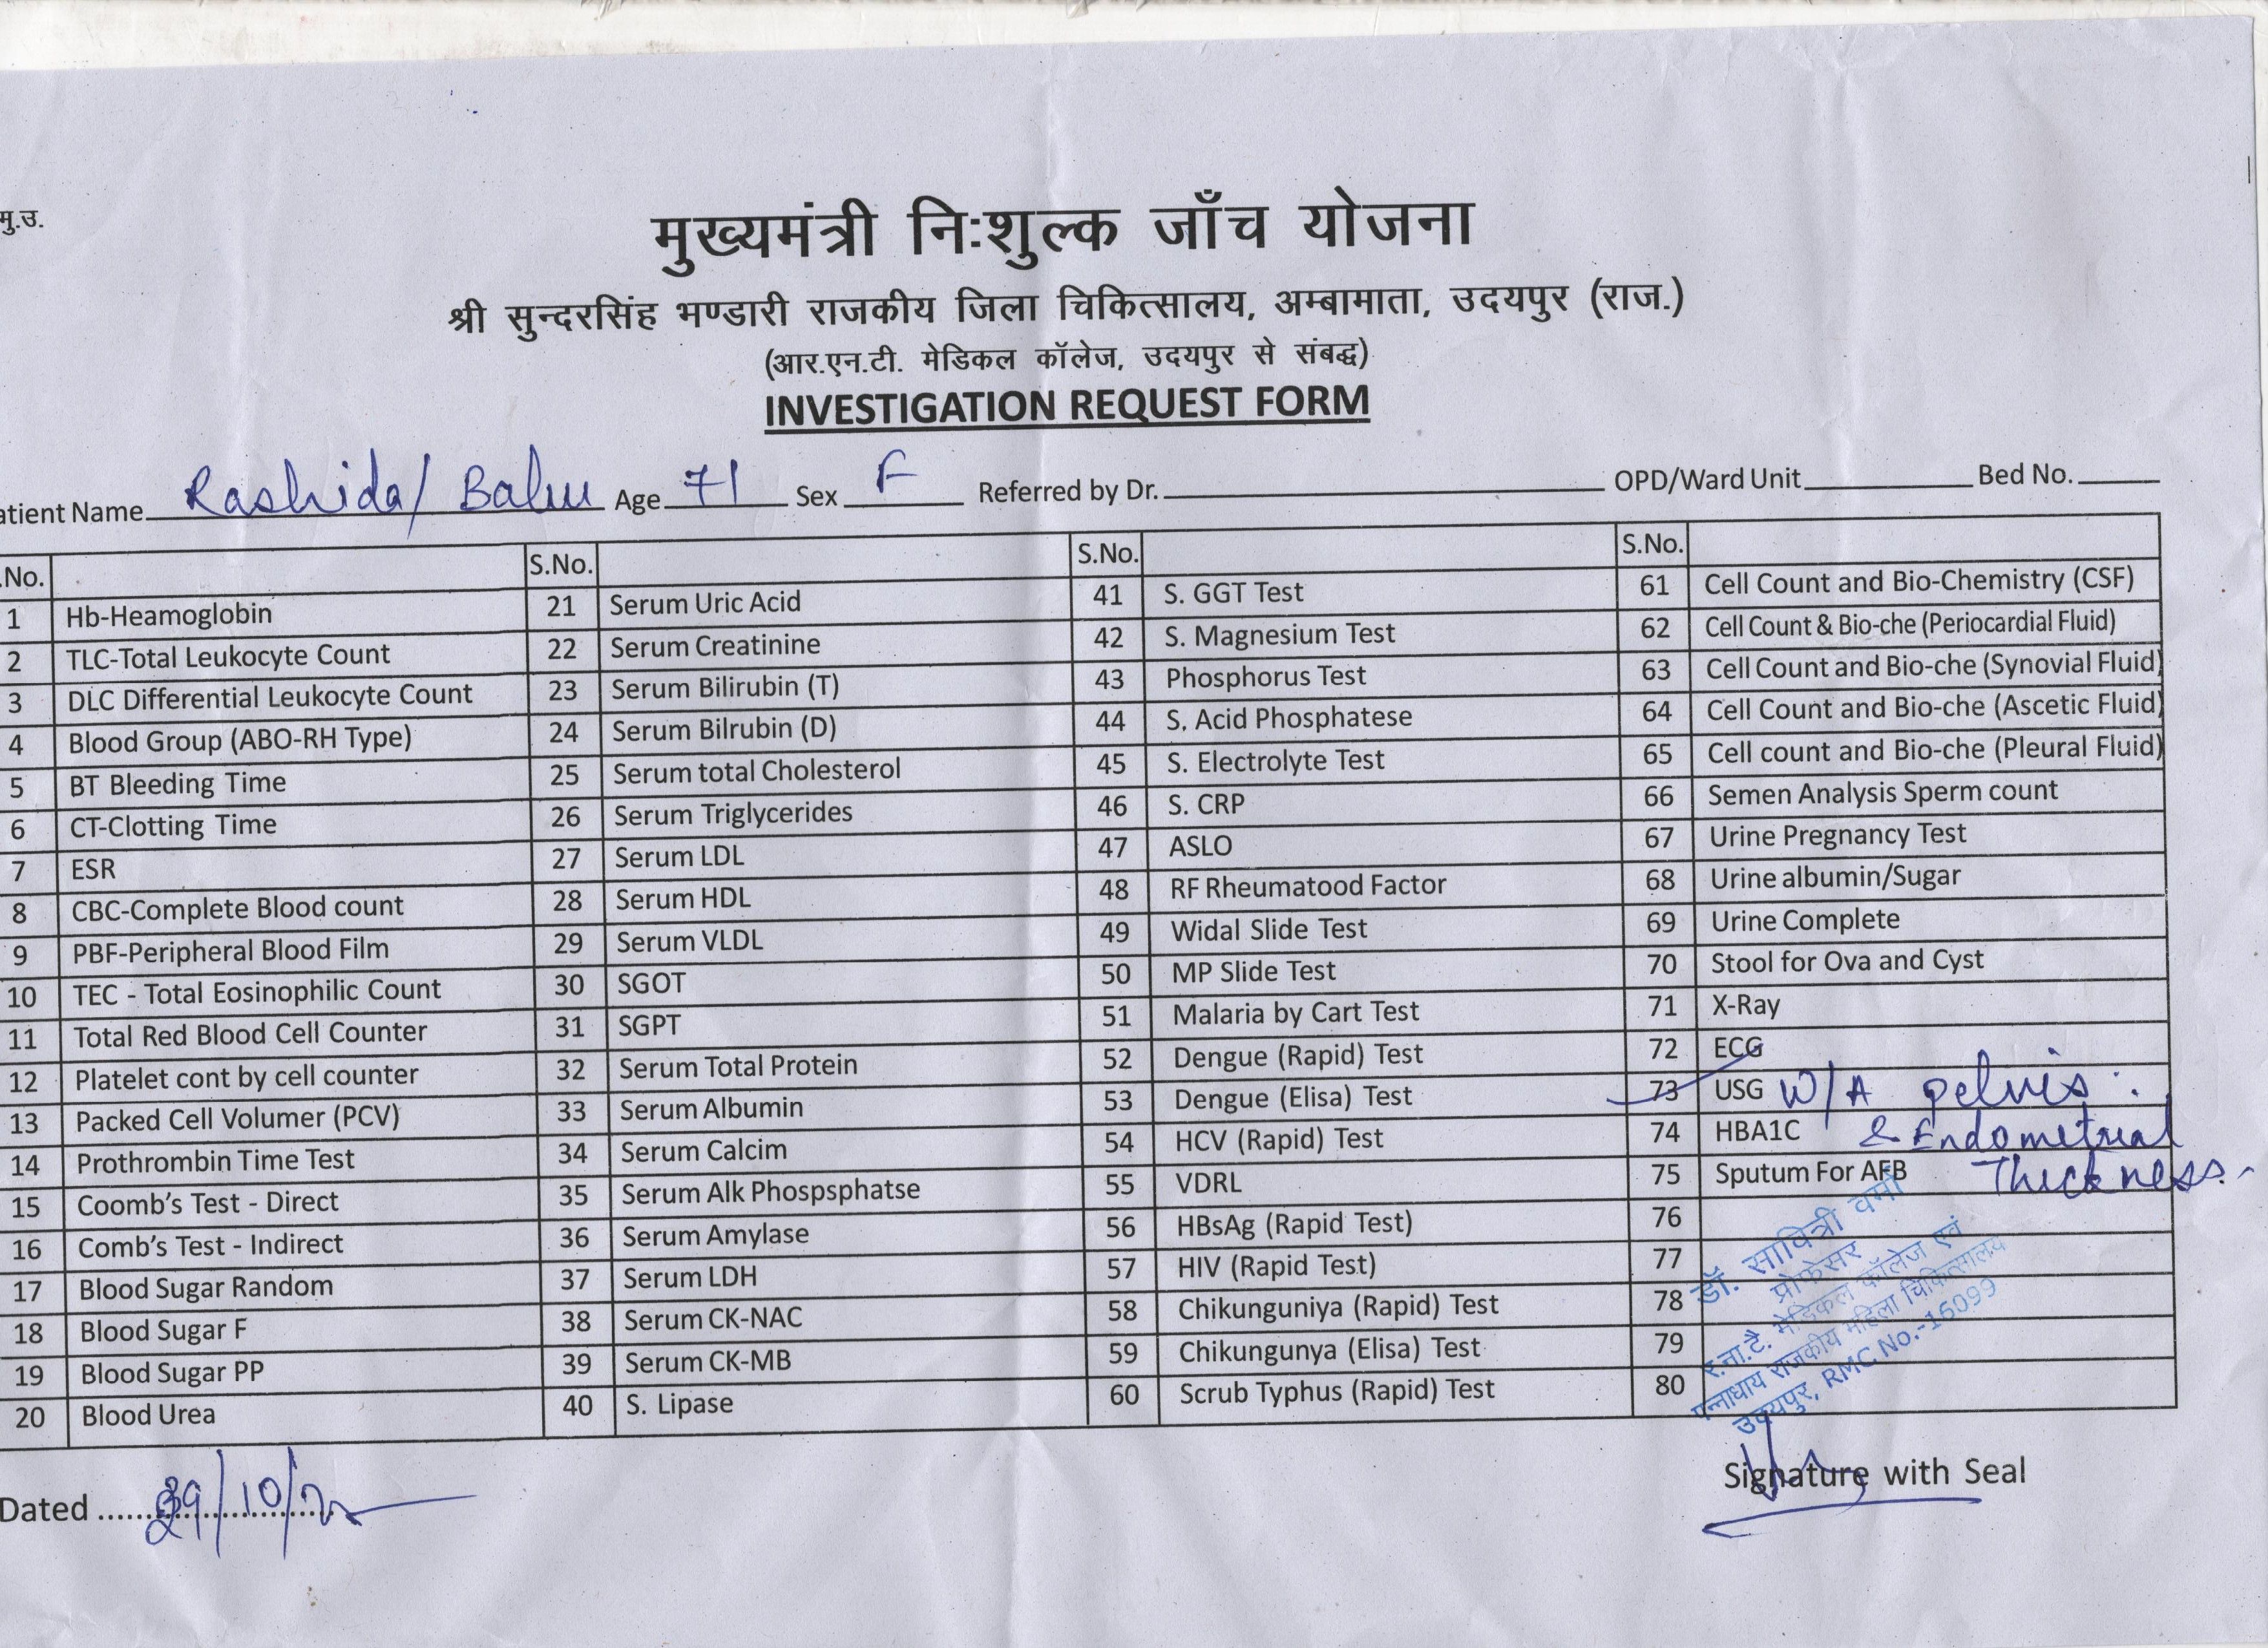 मु.उ.
मुख्यमंत्री निःशुल्क जाँच योजना
श्री सुन्दरसिंह भण्डारी राजकीय जिला चिकित्सालय, अम्बामाता, उदयपुर (राज.)
(आर.एन.टी. मेडिकल कॉलेज, उदयपुर से संबद्ध)
INVESTIGATION REQUEST FORM
atient Name Rashida/ Age 71 Sex F Referred by Dr. OPD/Ward Unit Bed No.
.No. S.No. S.No. S.No.
1 Hb-Heamoglobin 21 Serum Uric Acid 41 S. GGT Test 61 Cell Count and Bio-Chemistry (CSF)
2 TLC-Total Leukocyte Count 22 Serum Creatinine 42 S. Magnesium Test 62 Cell Count & Bio-che (Periocardial Fluid)
3 DLC Differential Leukocyte Count 23 Serum Bilirubin (T) 43 Phosphorus Test 63 Cell Count and Bio-che (Synovial Fluid)
4 Blood Group (ABO-RH Type) 24 Serum Bilrubin (D) 44 S. Acid Phosphatese 64 Cell Count and Bio-che (Ascetic Fluid)
5 BT Bleeding Time 25 Serum total Cholesterol 45 S. Electrolyte Test 65 Cell count and Bio-che (Pleural Fluid)
6 CT-Clotting Time 26 Serum Triglycerides 46 S. CRP 66 Semen Analysis Sperm count
7 ESR 27 Serum LDL 47 ASLO 67 Urine Pregnancy Test
8 CBC-Complete Blood count 28 Serum HDL 48 RF Rheumatood Factor 68 Urine albumin/Sugar
9 PBF-Peripheral Blood Film 29 Serum VLDL 49 Widal Slide Test 69 Urine Complete
10 TEC - Total Eosinophilic Count 30 SGOT 50 MP Slide Test 70 Stool for Ova and Cyst
11 Total Red Blood Cell Counter 31 SGPT 51 Malaria by Cart Test 71 X-Ray
12 Platelet cont by cell counter 32 Serum Total Protein 52 Dengue (Rapid) Test 72 ECG
13 Packed Cell Volumer (PCV) 33 Serum Albumin 53 Dengue (Elisa) Test 73 USG W/A pelvis.
14 Prothrombin Time Test 34 Serum Calcim 54 HCV (Rapid) Test 74 HBA1C & Endometrial
15 Coomb's Test - Direct 35 Serum Alk Phospsphatse 55 VDRL 75 Sputum For AFB Thickness.
16 Comb's Test - Indirect 36 Serum Amylase 56 HBsAg (Rapid Test) 76
17 Blood Sugar Random 37 Serum LDH 57 HIV (Rapid Test) 77
18 Blood Sugar F 38 Serum CK-NAC 58 Chikunguniya (Rapid) Test 78
19 Blood Sugar PP 39 Serum CK-MB 59 Chikungunya (Elisa) Test 79
20 Blood Urea 40 S. Lipase 60 Scrub Typhus (Rapid) Test 80
डॉ. सावित्री वर्मा
प्रोफेसर
र.ना.टै. मेडिकल कॉलेज एवं
पन्नाधाय राजकीय महिला चिकित्सालय
उदयपुर, RMC No.-16099
Signature with Seal
Dated